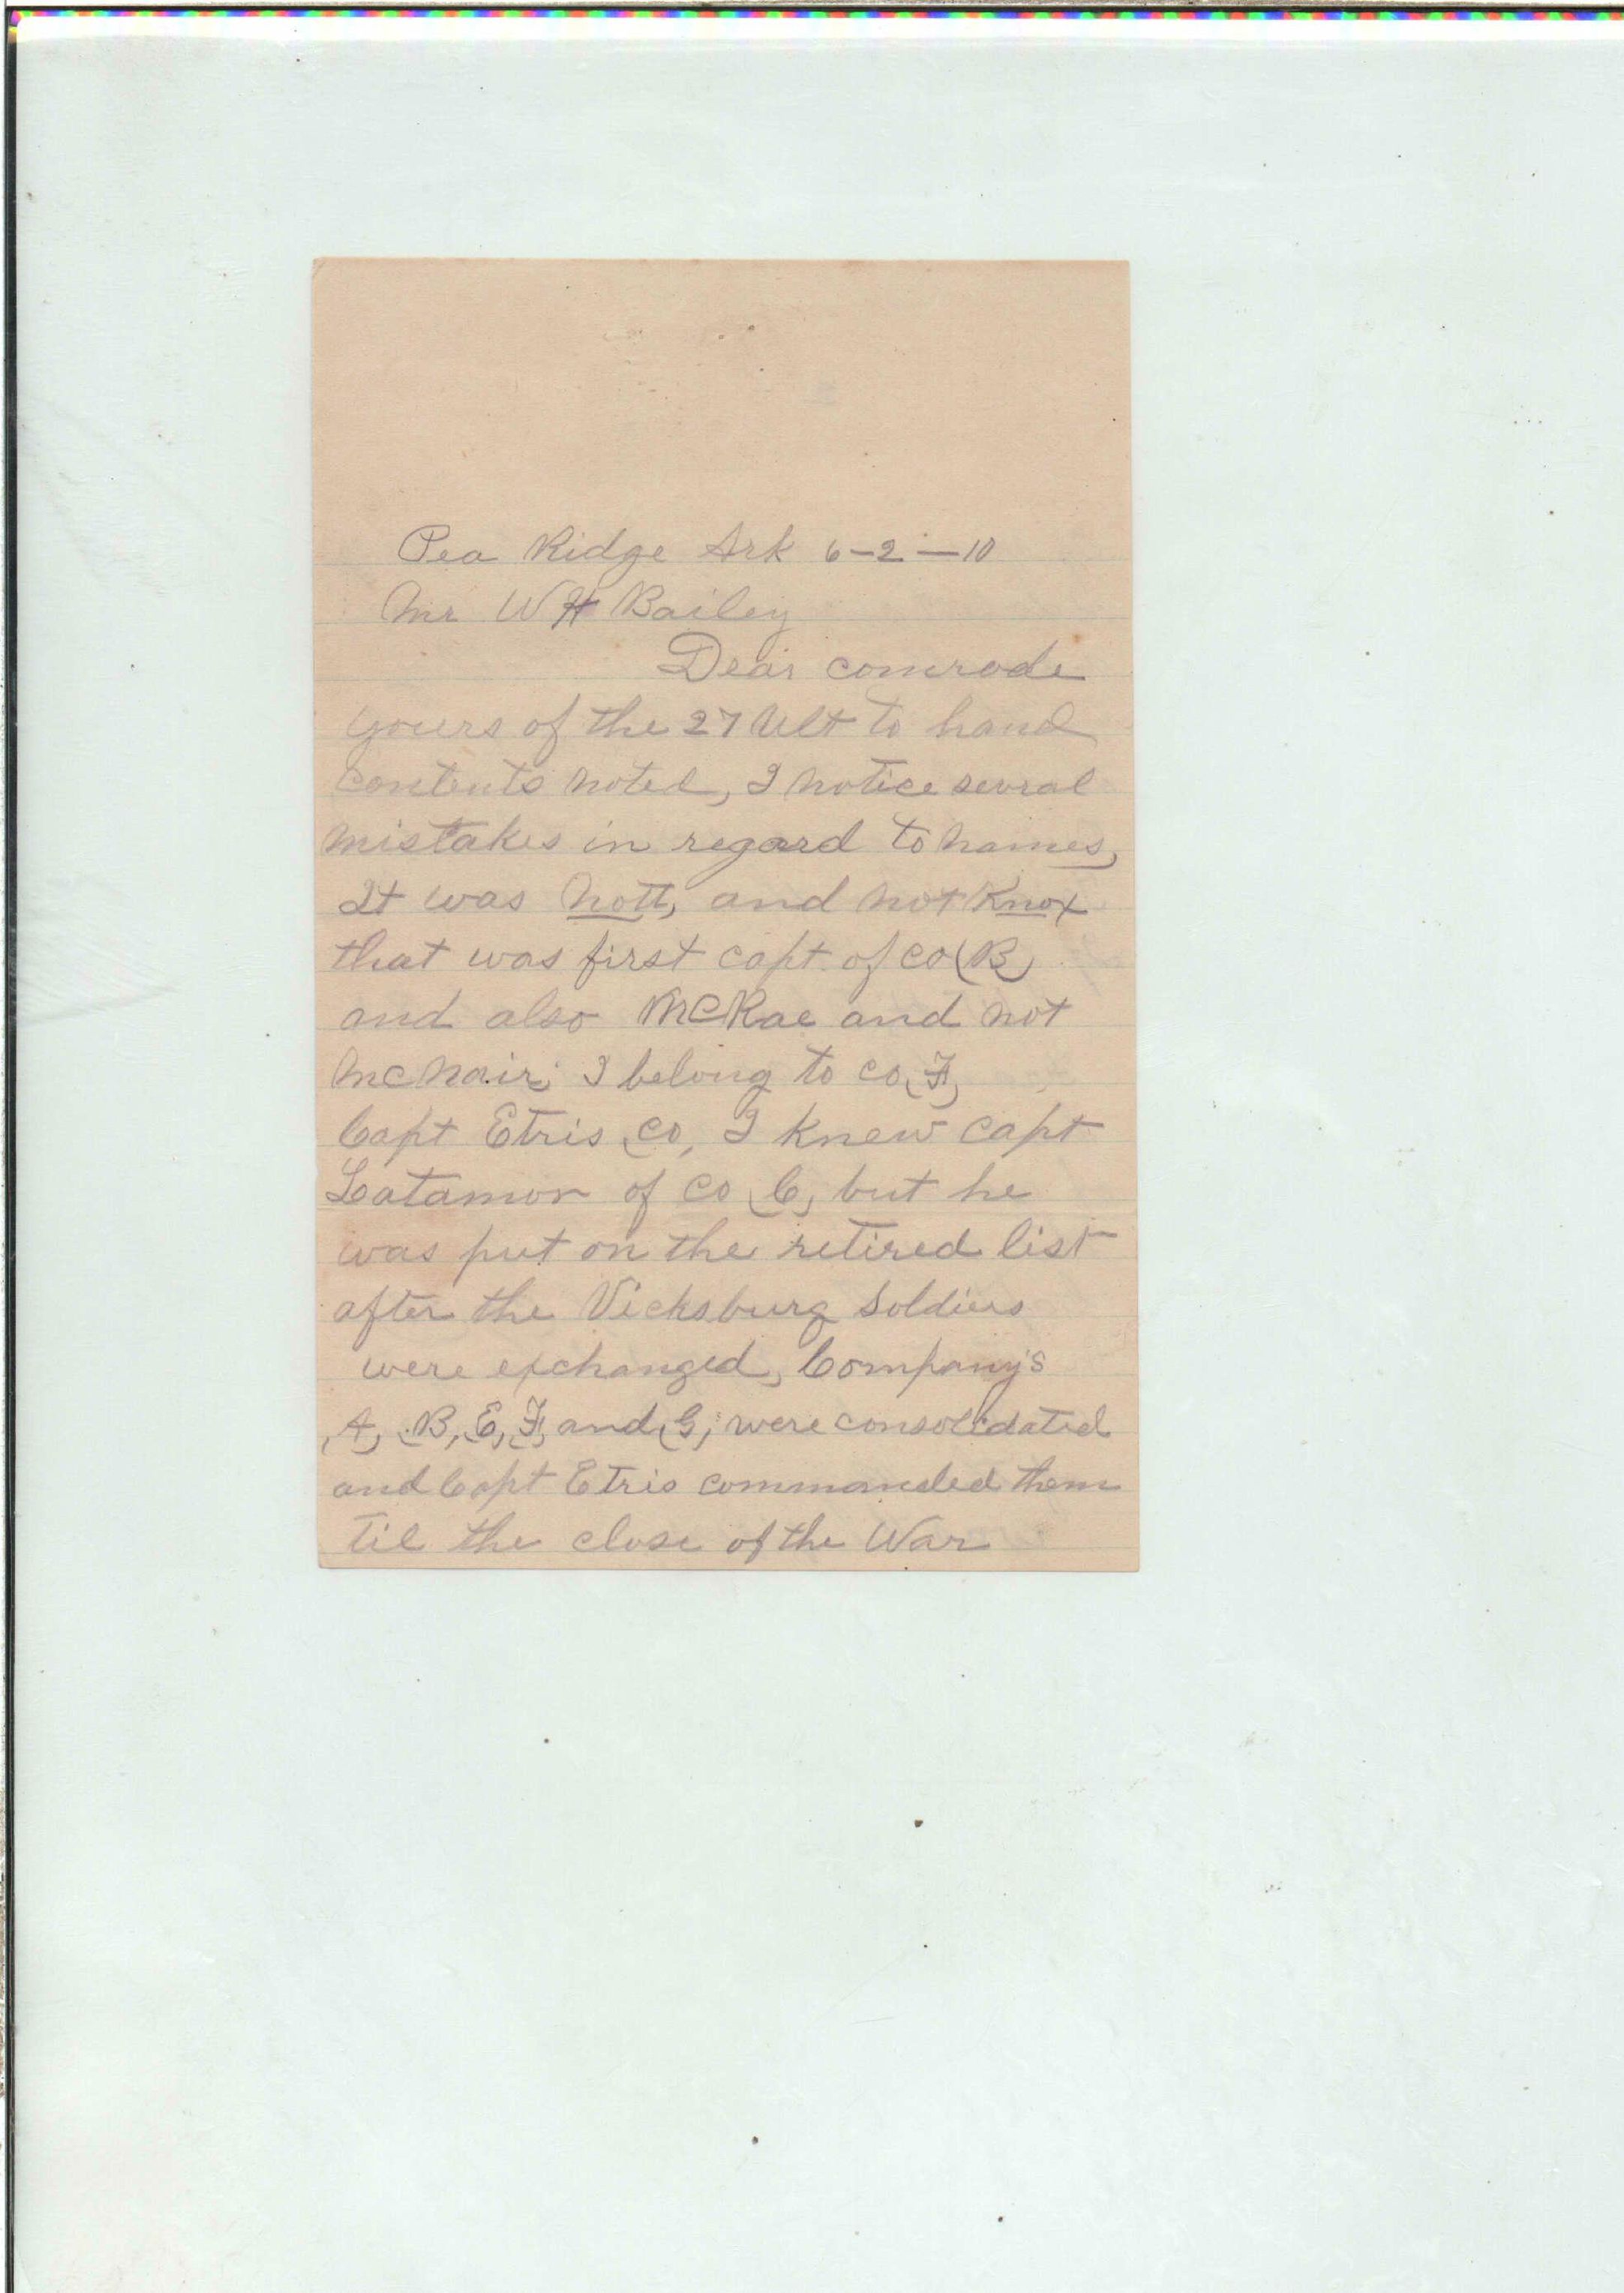 Pea Ridge Ark 6-2-10
Mr W H Bailey
Dear comrade
yours of the 27 Ult to hand
contents noted, I notice sevral
mistakes in regard to names,
It was Nott, and not Knox
that was first capt of co (B)
and also McRae and not
McNair; I belong to co, F,
Capt Etris co, I knew capt
Latamor of co C, but he
was put on the retired list
after the Vicksburg Soldiers
were exchanged, Company's
A, B, E, F, and G, were consolidated
and Capt Etris commanded them
til the close of the War